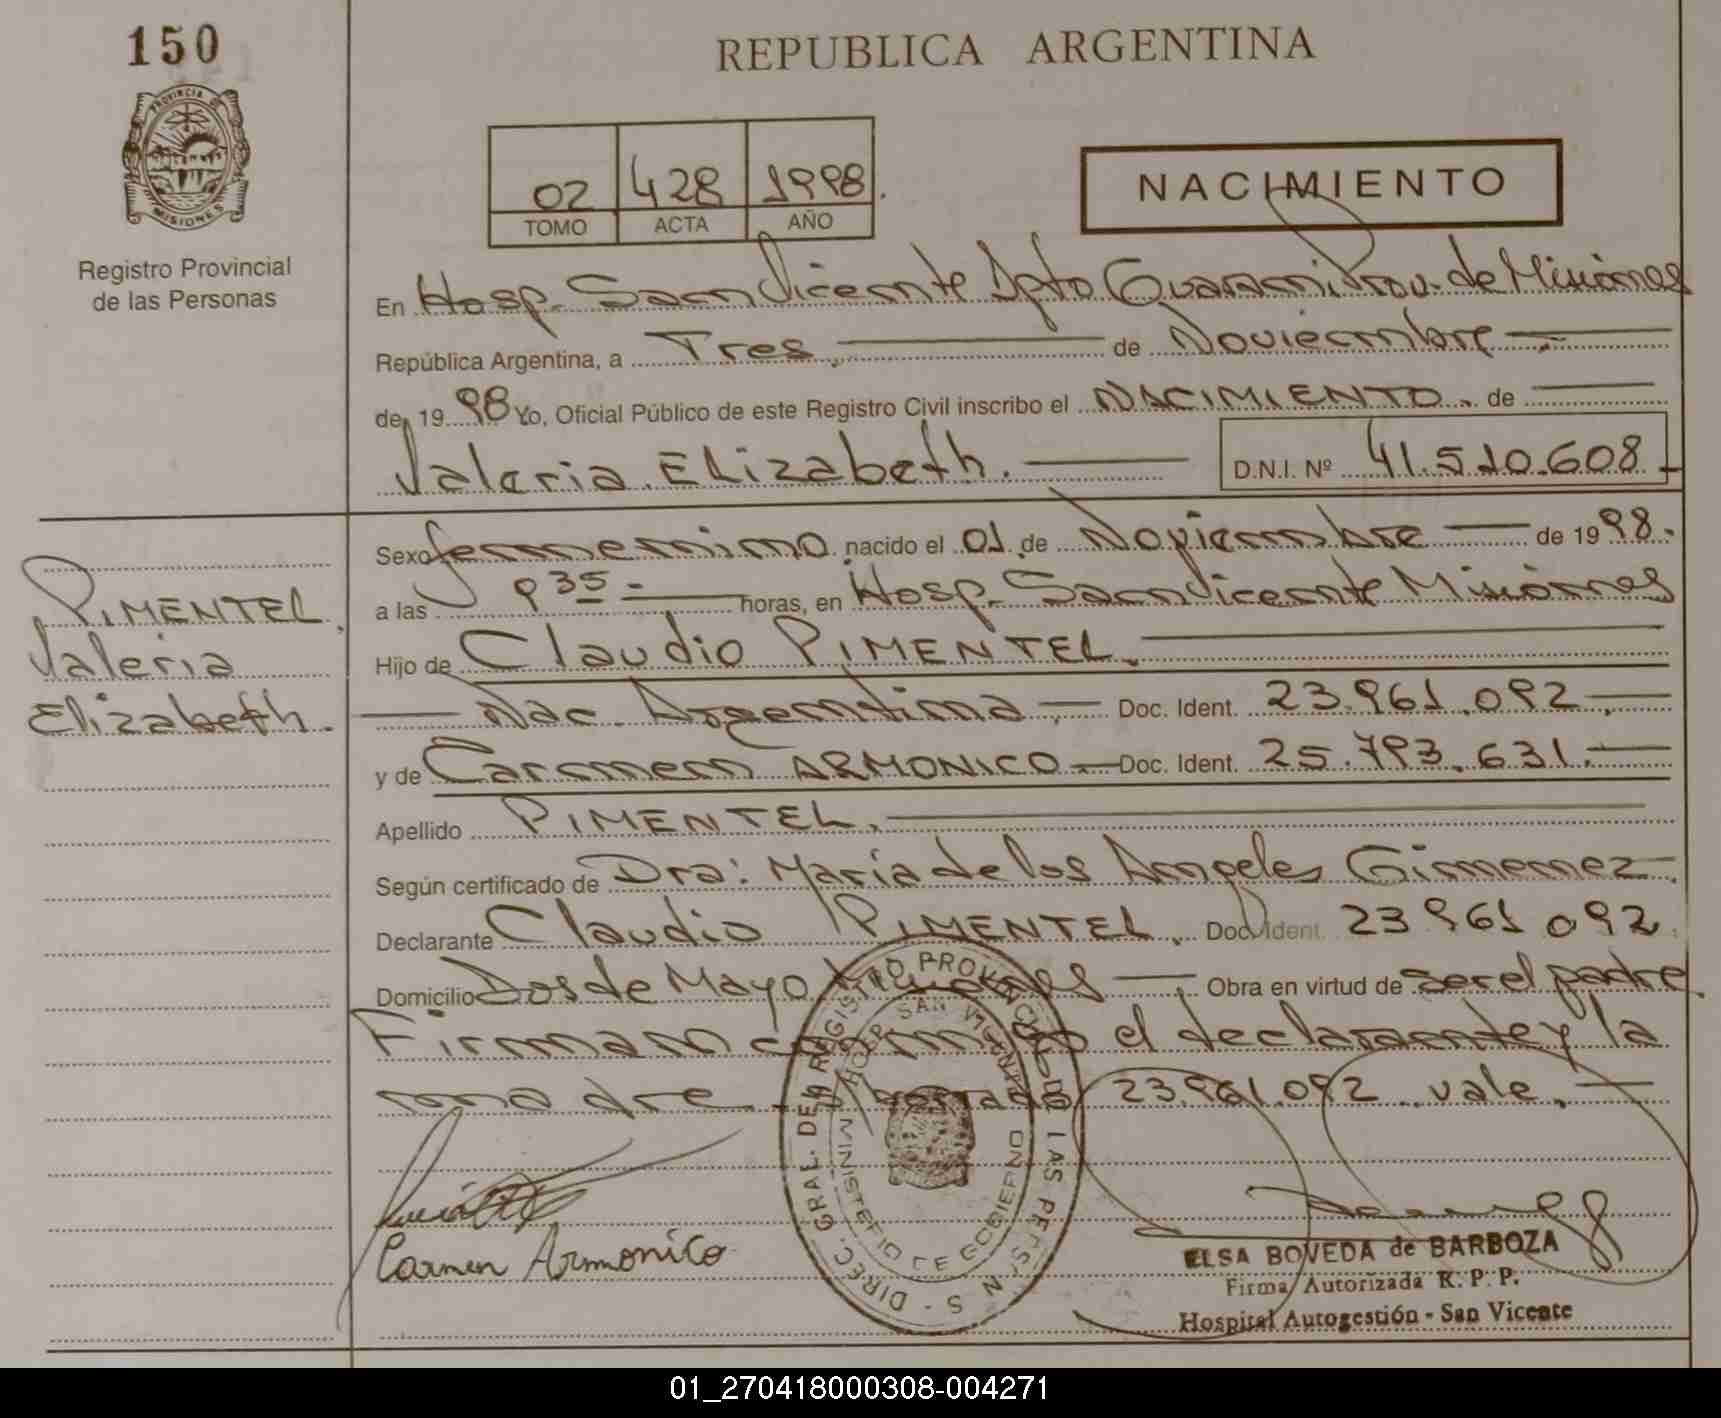 150
PROVINCIA DE
MISIONES
Registro Provincial
de las Personas
REPUBLICA ARGENTINA
02 428 1998.
TOMO ACTA AÑO
NACIMIENTO
En Hosp. San Vicente Dpto Guarani Prov. de Misiones
República Argentina, a Tres, de Noviembre
de 19 98 Yo, Oficial Público de este Registro Civil inscribo el NACIMIENTO. de
Valeria Elizabeth. D.N.I. Nº 41.510.608
PIMENTEL,
Valeria
Elizabeth.
Sexo femenino nacido el 01 de Noviembre de 1998.
a las 9 35 horas, en Hosp. San Vicente Misiones
Hijo de Claudio PIMENTEL.
Nac. Argentina, Doc. Ident. 23.961.092
y de Carmen ARMONICO Doc. Ident. 25.793.631.
Apellido PIMENTEL.
Según certificado de Dra: Maria de los Angeles Gimenez.
Declarante Claudio PIMENTEL. Doc. Ident. 23 961 092
Domicilio Dos de Mayo Misiones Obra en virtud de ser el padre
Firman conmigo el declarante y la
madre. 23.961.092 vale.
DIREC. GRAL. DEL REGISTRO PROVINCIAL DE LAS PERSONAS
HOSP SAN VICENTE
MINISTERIO DE GOBIERNO
Carmen Armonico
ELSA BOVEDA de BARBOZA
Firma Autorizada R. P. P.
Hospital Autogestión - San Vicente
01_270418000308-004271